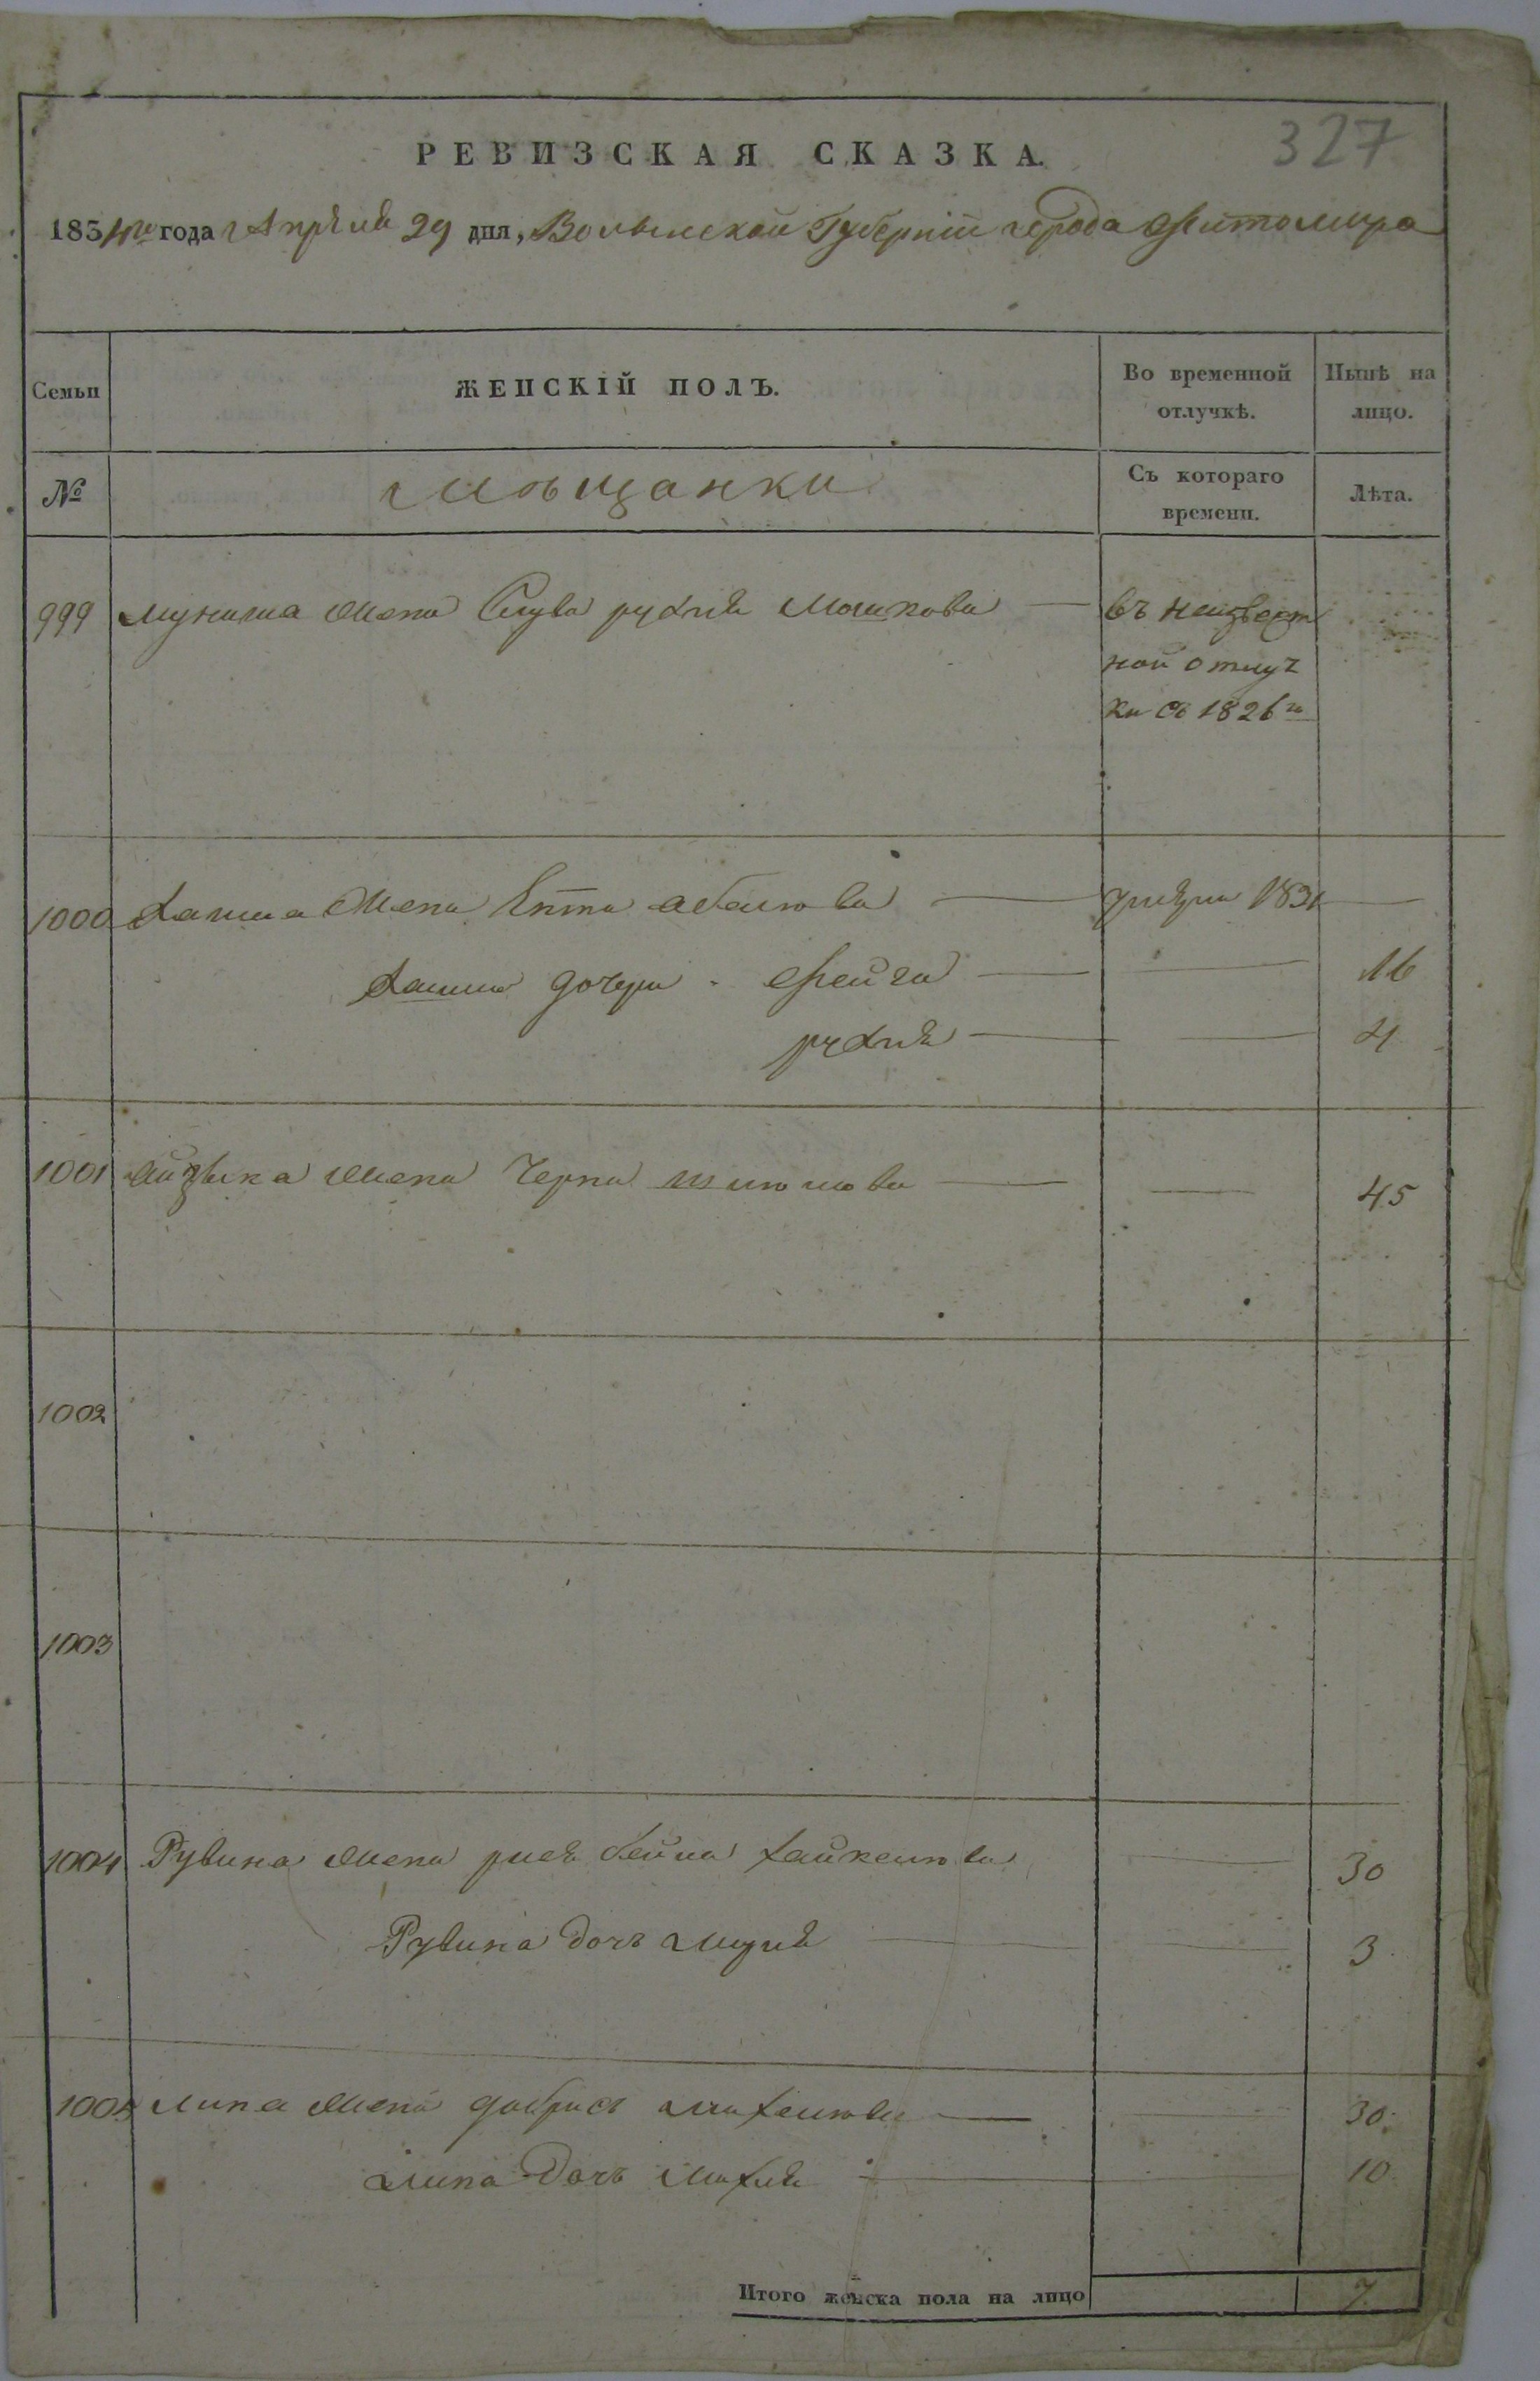 327
РЕВИЗСКАЯ СКАЗКА.
1854го года Апрѣля 29 дня, Волынской Губерніи города Житомира
Семьи ЖЕНСКІЙ ПОЛЪ. Во временной отлучкѣ. Нынѣ на лицо.
№ Мѣщанки Съ котораго времени. Лѣта.
999 жена рухля Мошкова — въ неизвест
ной отлуч
ки съ 1826го
1000 жена абелюва — 1831 —
дочери Фейга — — 16
рухля — — 4
1001 Айзыка жена Черна — — 45
1002
1003
1004 Рувина жена бейла хайкелюва — 30
Рувина дочь — — 3
1005 Липа жена — — 30
Липа Дочь Махля — — 10
Итого женска пола на лицо 7